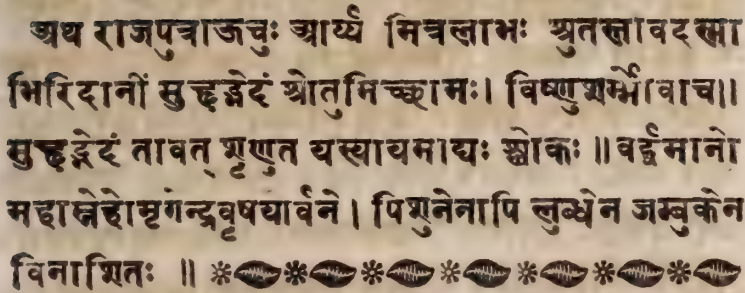 अथ राजपुत्राऊचुः आर्य्य मित्रलाभः श्रुतस्तावदस्मा
भिरिदानीं सुहृद्भेदं श्रोतुमिच्छामः। विष्णुशर्म्मोवाच॥
सुहृद्भेदं तावत् शृणुत यस्यायमाद्यः श्लोकः ॥ वर्द्धमानो
महास्नेहोमृगेन्द्रवृषयार्वने । पिशुनेनापि लुब्धेन जम्बुकेन
विनाशितः ॥